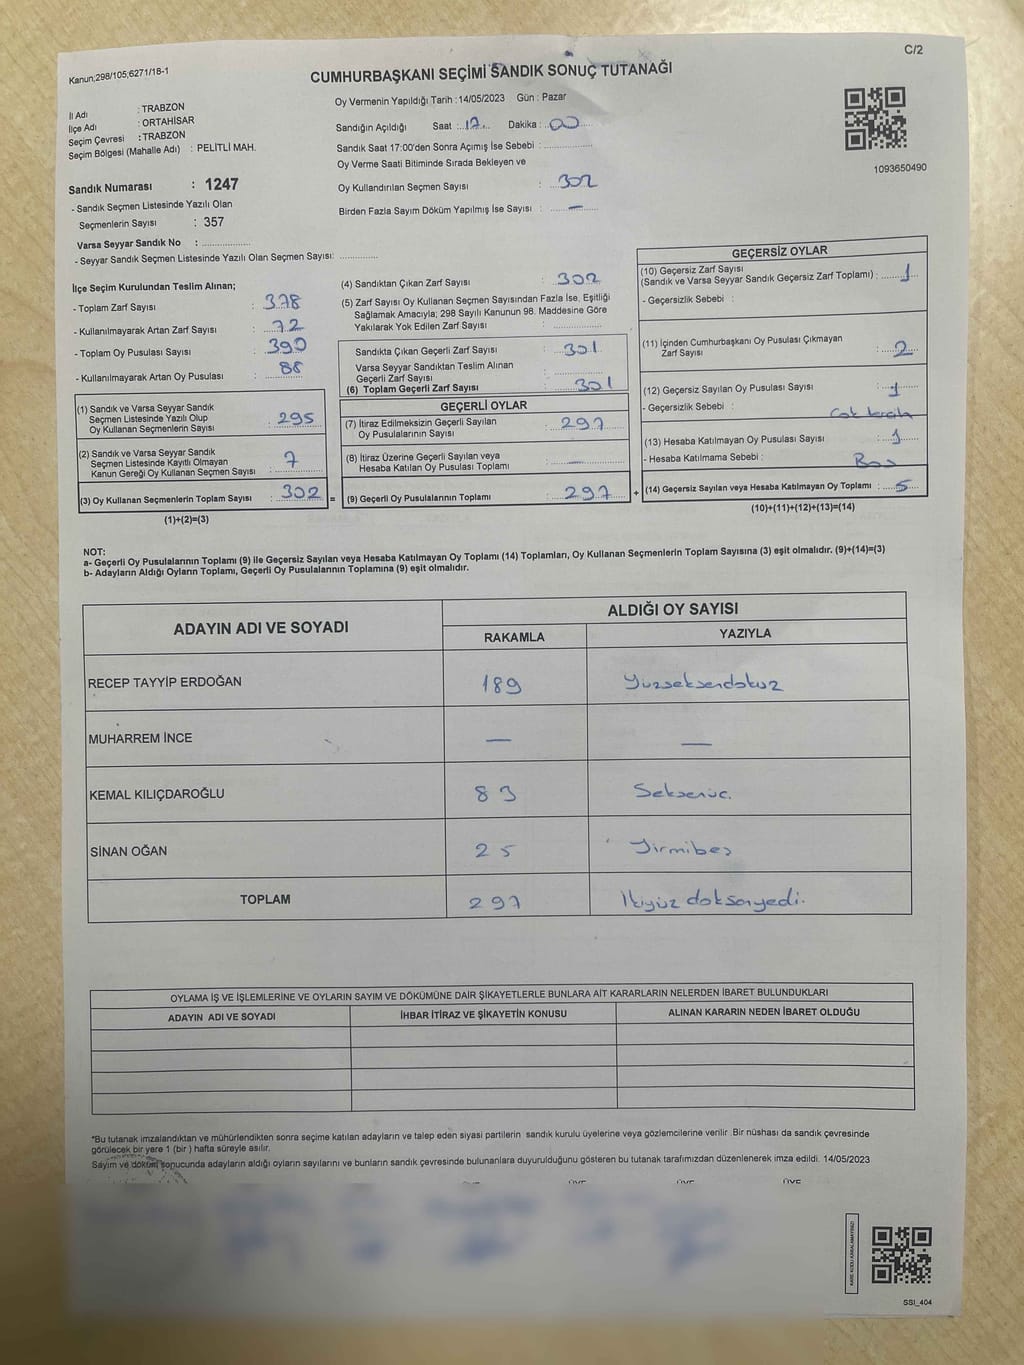 C/2
Kanun;298/105,6271/18-1
CUMHURBAŞKANI SEÇİMİ SANDIK SONUÇ TUTANAĞI
İl Adı : TRABZON
İlçe Adı : ORTAHİSAR
Seçim Çevresi : TRABZON
Seçim Bölgesi (Mahalle Adı) : PELİTLİ MAH.
Sandık Numarası : 1247
- Sandık Seçmen Listesinde Yazılı Olan
Seçmenlerin Sayısı : 357
Varsa Seyyar Sandık No : ..................
- Seyyar Sandık Seçmen Listesinde Yazılı Olan Seçmen Sayısı: ..............
Oy Vermenin Yapıldığı Tarih :14/05/2023 Gün : Pazar
Sandığın Açıldığı Saat : 17 Dakika : 00
Sandık Saat 17:00'den Sonra Açımış İse Sebebi : ..................
Oy Verme Saati Bitiminde Sırada Bekleyen ve
Oy Kullandırılan Seçmen Sayısı : 302
Birden Fazla Sayım Döküm Yapılmış İse Sayısı : —
1093650490
İlçe Seçim Kurulundan Teslim Alınan;
- Toplam Zarf Sayısı : 378
- Kullanılmayarak Artan Zarf Sayısı : 72
- Toplam Oy Pusulası Sayısı : 390
- Kullanılmayarak Artan Oy Pusulası : 88
(1) Sandık ve Varsa Seyyar Sandık
Seçmen Listesinde Yazılı Olup
Oy Kullanan Seçmenlerin Sayısı : 295
(2) Sandık ve Varsa Seyyar Sandık
Seçmen Listesinde Kayıtlı Olmayan
Kanun Gereği Oy Kullanan Seçmen Sayısı : 7
(3) Oy Kullanan Seçmenlerin Toplam Sayısı : 302 =
(1)+(2)=(3)
(4) Sandıktan Çıkan Zarf Sayısı : 302
(5) Zarf Sayısı Oy Kullanan Seçmen Sayısından Fazla İse, Eşitliği
Sağlamak Amacıyla; 298 Sayılı Kanunun 98. Maddesine Göre
Yakılarak Yok Edilen Zarf Sayısı : ..................
Sandıkta Çıkan Geçerli Zarf Sayısı : 301
Varsa Seyyar Sandıktan Teslim Alınan
Geçerli Zarf Sayısı : ..................
(6) Toplam Geçerli Zarf Sayısı : 301
GEÇERLİ OYLAR
(7) İtiraz Edilmeksizin Geçerli Sayılan
Oy Pusulalarının Sayısı : 297
(8) İtiraz Üzerine Geçerli Sayılan veya
Hesaba Katılan Oy Pusulası Toplamı : —
(9) Geçerli Oy Pusulalarının Toplamı : 297 +
GEÇERSİZ OYLAR
(10) Geçersiz Zarf Sayısı
(Sandık ve Varsa Seyyar Sandık Geçersiz Zarf Toplamı) : 1
- Geçersizlik Sebebi :
(11) İçinden Cumhurbaşkanı Oy Pusulası Çıkmayan
Zarf Sayısı : 2
(12) Geçersiz Sayılan Oy Pusulası Sayısı : 1
- Geçersizlik Sebebi :
(13) Hesaba Katılmayan Oy Pusulası Sayısı : 1
- Hesaba Katılmama Sebebi : Boş
(14) Geçersiz Sayılan veya Hesaba Katılmayan Oy Toplamı : 5
(10)+(11)+(12)+(13)=(14)
NOT:
a- Geçerli Oy Pusulalarının Toplamı (9) ile Geçersiz Sayılan veya Hesaba Katılmayan Oy Toplamı (14) Toplamları, Oy Kullanan Seçmenlerin Toplam Sayısına (3) eşit olmalıdır. (9)+(14)=(3)
b- Adayların Aldığı Oyların Toplamı, Geçerli Oy Pusulalarının Toplamına (9) eşit olmalıdır.
ADAYIN ADI VE SOYADI ALDIĞI OY SAYISI
RAKAMLA YAZIYLA
RECEP TAYYİP ERDOĞAN 189 Yüzseksendokuz
MUHARREM İNCE — —
KEMAL KILIÇDAROĞLU 83 Seksenüç.
SİNAN OĞAN 25 Yirmibeş
TOPLAM 297 İkiyüz doksanyedi.
OYLAMA İŞ VE İŞLEMLERİNE VE OYLARIN SAYIM VE DÖKÜMÜNE DAİR ŞİKAYETLERLE BUNLARA AİT KARARLARIN NELERDEN İBARET BULUNDUKLARI
ADAYIN ADI VE SOYADI İHBAR İTİRAZ VE ŞİKAYETİN KONUSU ALINAN KARARIN NEDEN İBARET OLDUĞU
*Bu tutanak imzalandıktan ve mühürlendikten sonra seçime katılan adayların ve talep eden siyasi partilerin sandık kurulu üyelerine veya gözlemcilerine verilir .Bir nüshası da sandık çevresinde
görülecek bir yere 1 (bir ) hafta süreyle asılır.
Sayım ve döküm sonucunda adayların aldığı oyların sayılarını ve bunların sandık çevresinde bulunanlara duyurulduğunu gösteren bu tutanak tarafımızdan düzenlenerek imza edildi. 14/05/2023
ÜYE ÜYE ÜYE ÜYE
SSI_404